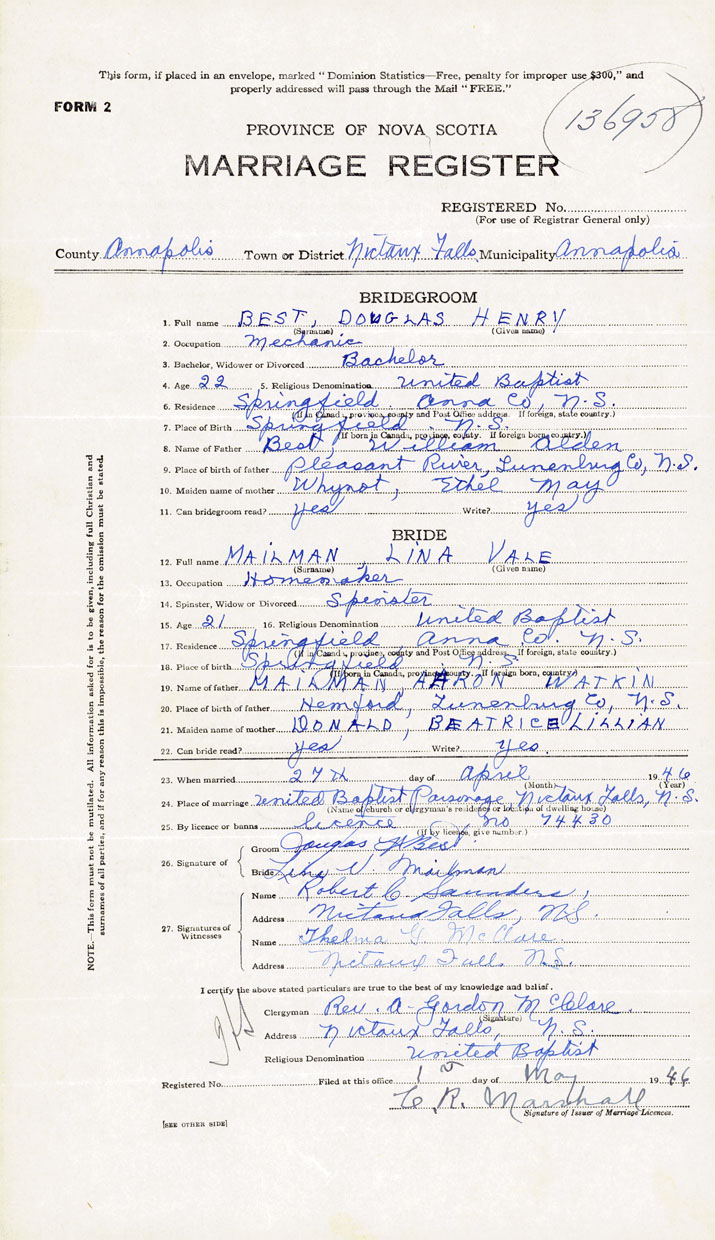 This form, if placed in an envelope, marked "Dominion Statistics—Free, penalty for improper use $300," and
properly addressed will pass through the Mail "FREE."
FORM 2
136958
PROVINCE OF NOVA SCOTIA
MARRIAGE REGISTER
REGISTERED No.
(For use of Registrar General only)
County Annapolis Town or District Nictaux Falls Municipality Annapolis
BRIDEGROOM
1. Full name BEST, DOUGLAS HENRY
(Surname) (Given name)
2. Occupation Mechanic
3. Bachelor, Widower or Divorced Bachelor
4. Age 22 5. Religious Denomination United Baptist
6. Residence Springfield Anna Co, N.S.
(If in Canada, province, county and Post Office address. If foreign, state country.)
7. Place of Birth Springfield N.S.
(If born in Canada, province, county. If foreign born country.)
8. Name of Father Best, William Alden
9. Place of birth of father Pleasant River, Lunenburg Co, N.S.
10. Maiden name of mother Whynot, Ethel May
11. Can bridegroom read? yes Write? yes
BRIDE
12. Full name MAILMAN LINA VALE
(Surname) (Given name)
13. Occupation Homemaker
14. Spinster, Widow or Divorced Spinster
15. Age 21 16. Religious Denomination United Baptist
17. Residence Springfield, Anna Co. N.S.
(If in Canada, province, county and Post Office address. If foreign, state country.)
18. Place of birth Springfield N.S
(If born in Canada, province county. If foreign born, country)
19. Name of father MAILMAN, AARON WATKIN
20. Place of birth of father Hemford, Lunenburg Co, N.S.
21. Maiden name of mother DONALD, BEATRICE LILLIAN
22. Can bride read? yes Write? yes.
23. When married 27th day of April 1946
(Month) (Year)
24. Place of marriage United Baptist Parsonage Nictaux Falls, N.S.
(Name of church or clergyman's residence or location of dwelling house)
25. By licence or banns licence no 74430
(If by licence, give number.)
26. Signature of
Groom Douglas H Best
Bride Lina V. Mailman
27. Signatures of Witnesses
Name Robert C. Saunders,
Address Nictaux Falls, N.S.
Name Thelma G. McClare
Address Nictaux Falls N.S.
I certify the above stated particulars are true to the best of my knowledge and belief.
Clergyman Rev. A. Gordon McClare
(Signature)
Address Nictaux Falls, N.S.
Religious Denomination United Baptist
Registered No. Filed at this office 1st day of May 1946
C. R. Marshall
Signature of Issuer of Marriage Licences.
[SEE OTHER SIDE]
NOTE.—This form must not be mutilated. All information asked for is to be given, including full Christian and
surnames of all parties, and if for any reason this is impossible, the reason for the omission must be stated.